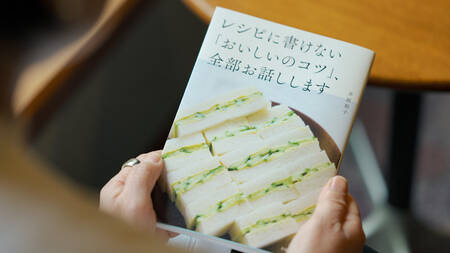 レシピに書けない
「おいしいのコツ」、
全部お話しします